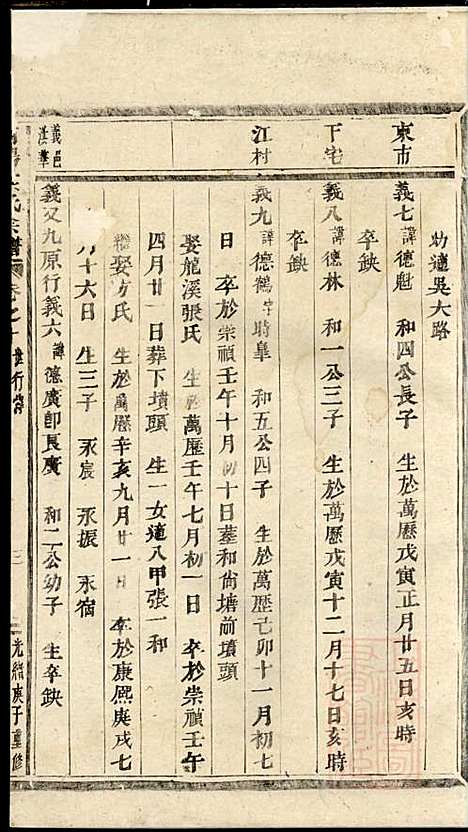 幼適吳大路
東市
義七諱德魁 和四公長子 生於萬歷戊寅正月廿五日亥時
卒缺
下宅
義八諱德林 和一公三子 生於萬歷戊寅十二月十七日亥時
卒缺
江村
義九諱德鶴字時臯 和五公四子 生於萬歷己卯十一月初七
日 卒於崇禎壬午十月初十日塟和尙塘前墳頭
娶龍溪張氏 生於萬歷壬午七月初一日 卒於崇禎壬午
四月廿一日葬下墳頭 生一女適八甲張一和
繼娶方氏 生於萬歷辛亥九月廿一日 卒於康熙庚戌七
月十六日 生三子 永宸 永振 永宿
義邑
義又九原行義六諱德廣卽長廣 和二公幼子 生卒缺
氏宗譜 卷之 行
三
光緒庚子重修